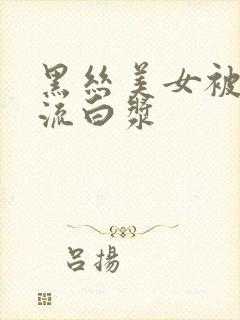 黑丝美女被
流白漿
吕揚